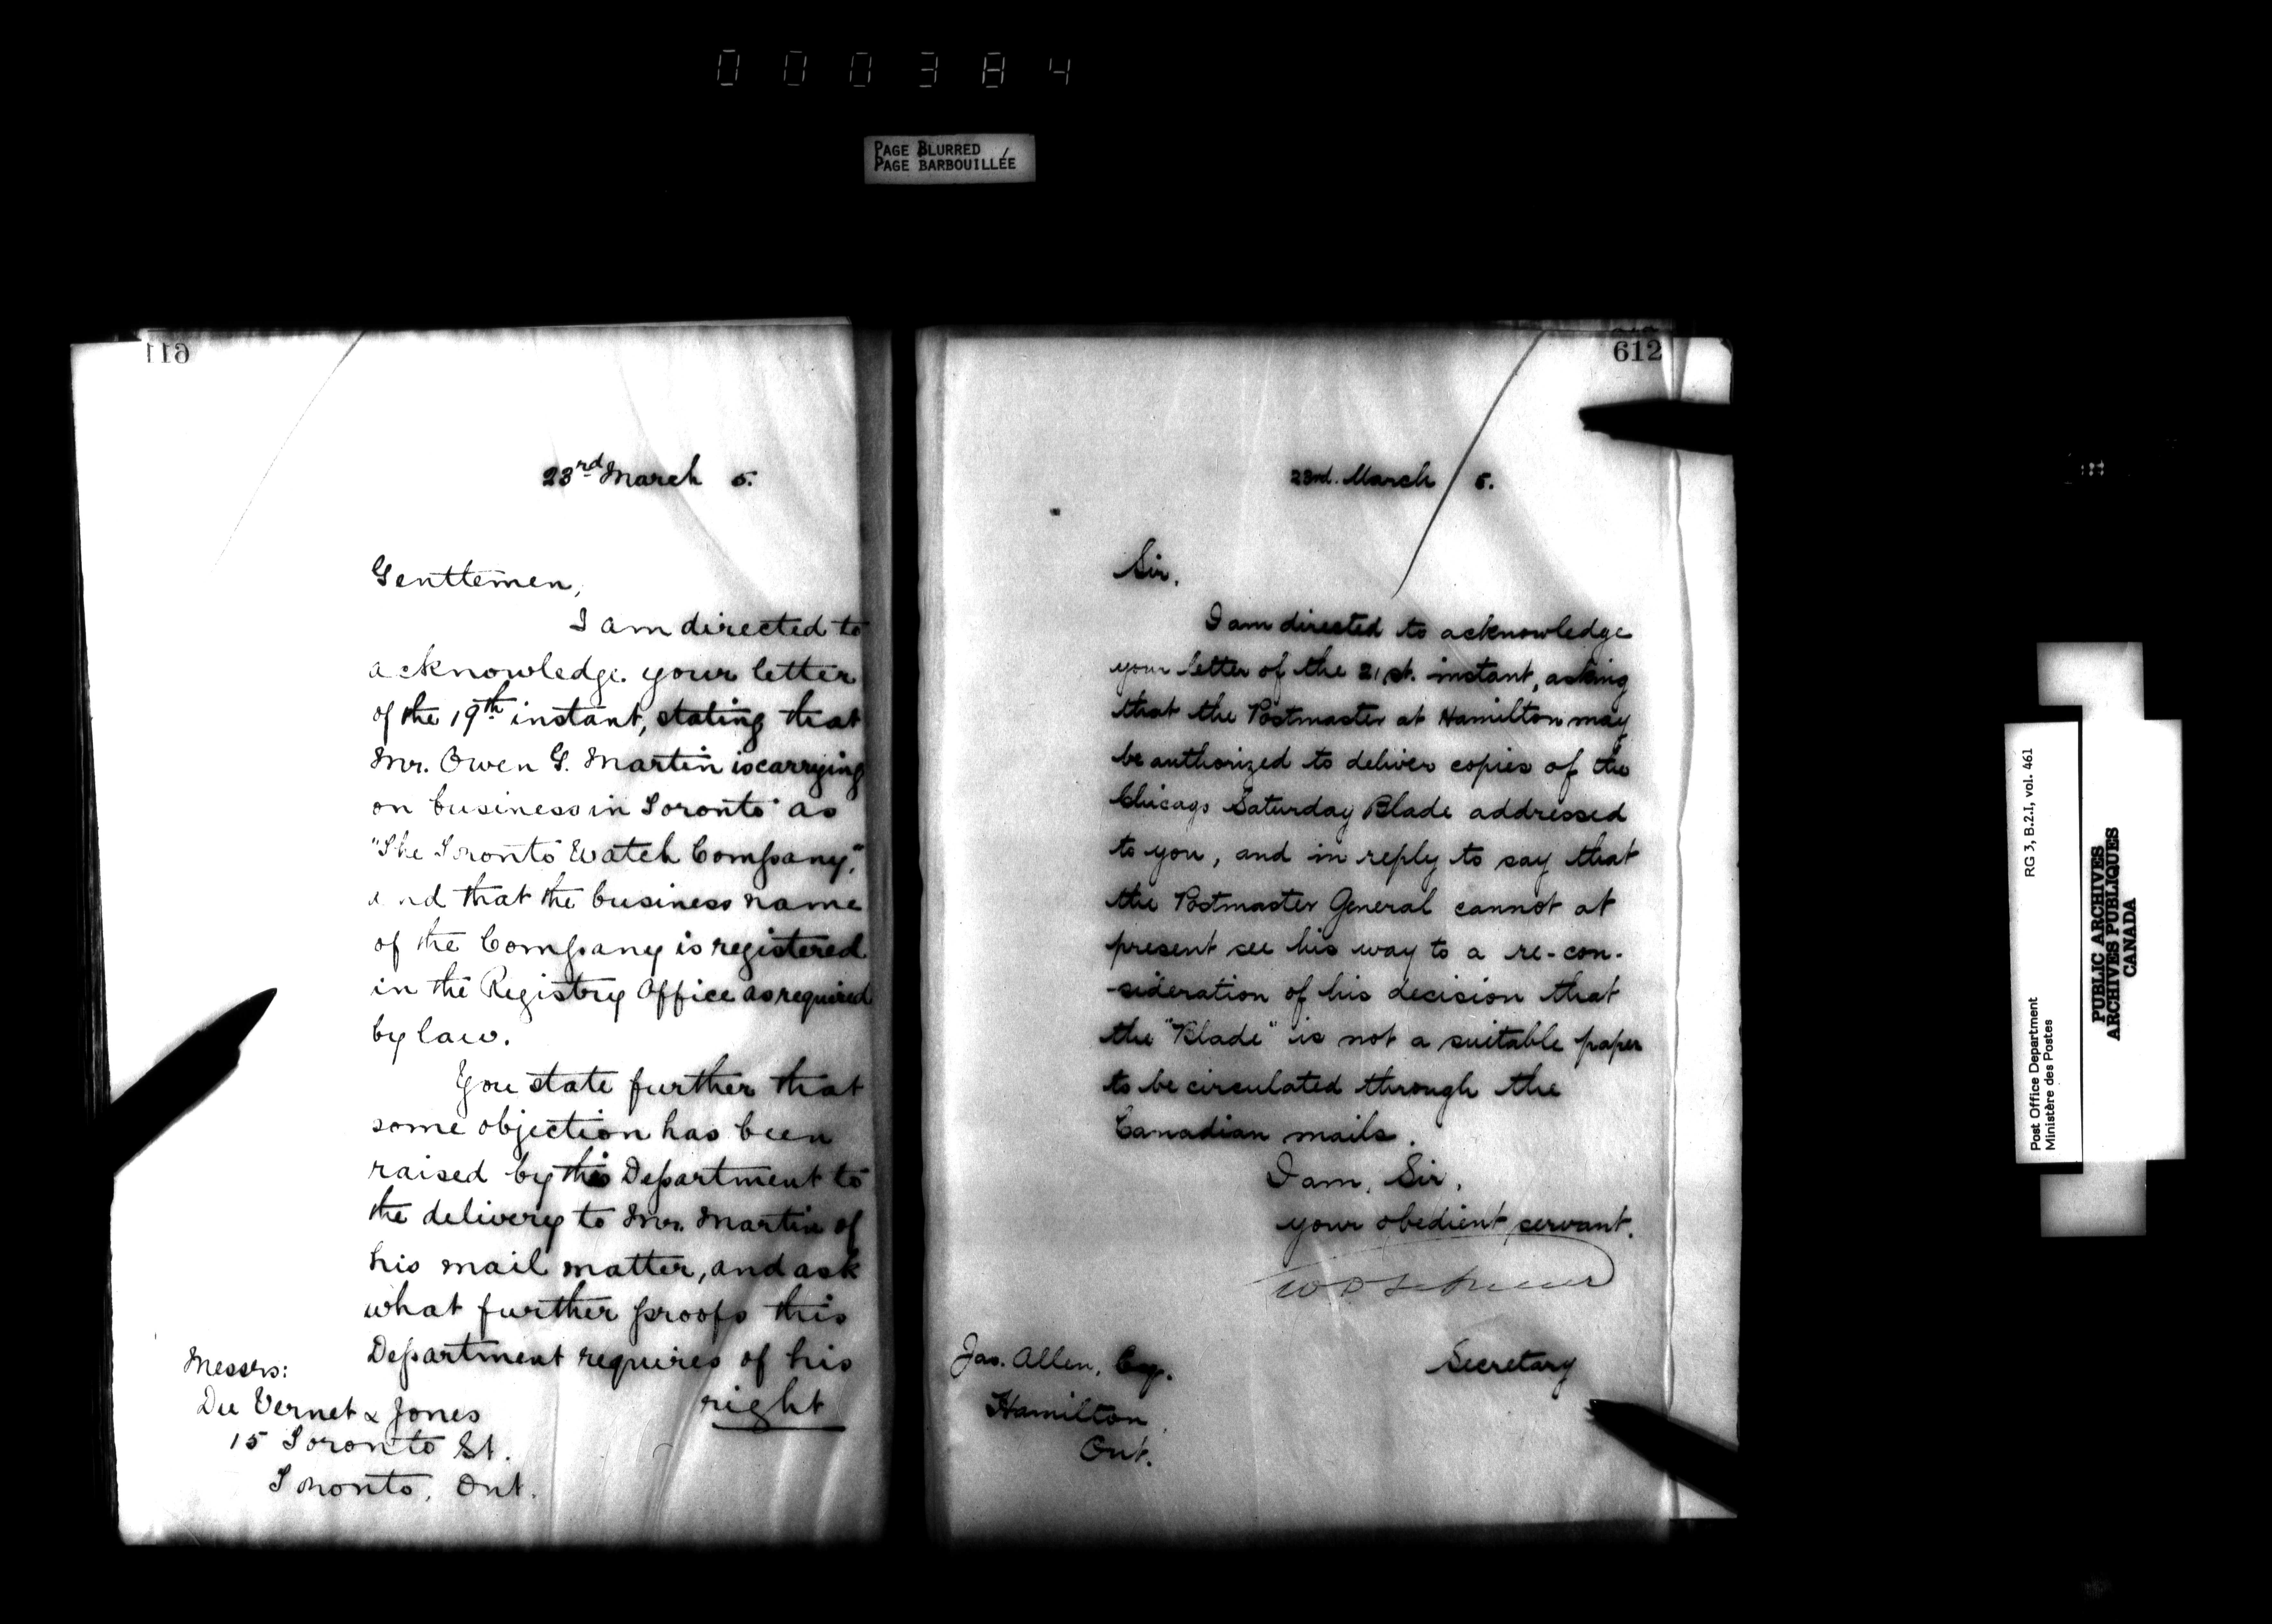 000384
PAGE BLURRED
PAGE BARBOUILLÉE
611
23rd March 5.
Genttemen,
I am directed to
acknowledge your letter
of the 19th instant, stating that
Mr. Owen G. Martin is carrying
on business in Toronto as
"The Toronto Watch Company,"
and that the business name
of the Company is registered
in the Registry Office as required
by law.
You state further that
some objection has been
raised by this Department to
the delivery to Mr. Martin of
his mail matter, and ask
what further proofs this
Department requires of his
right
Messrs:
Du Vernet & Jones
15 Toronto St.
Toronto, Ont.
612
23rd. March 5.
Sir,
I am directed to acknowledge
your letter of the 21st. instant, asking
that the Postmaster at Hamilton may
be authorized to deliver copies of the
Chicago Saturday Blade addressed
to you, and in reply to say that
the Postmaster General cannot at
present see his way to a re-con-
-sideration of his decision that
the "Blade" is not a suitable paper
to be circulated through the
Canadian mails.
I am, Sir,
your obedient servant.
Secretary
Jas. Allen, Esq.
Hamilton
Ont.
Post Office Department
Ministère des Postes
RG 3, B.2.I, vol. 461
PUBLIC ARCHIVES
ARCHIVES PUBLIQUES
CANADA